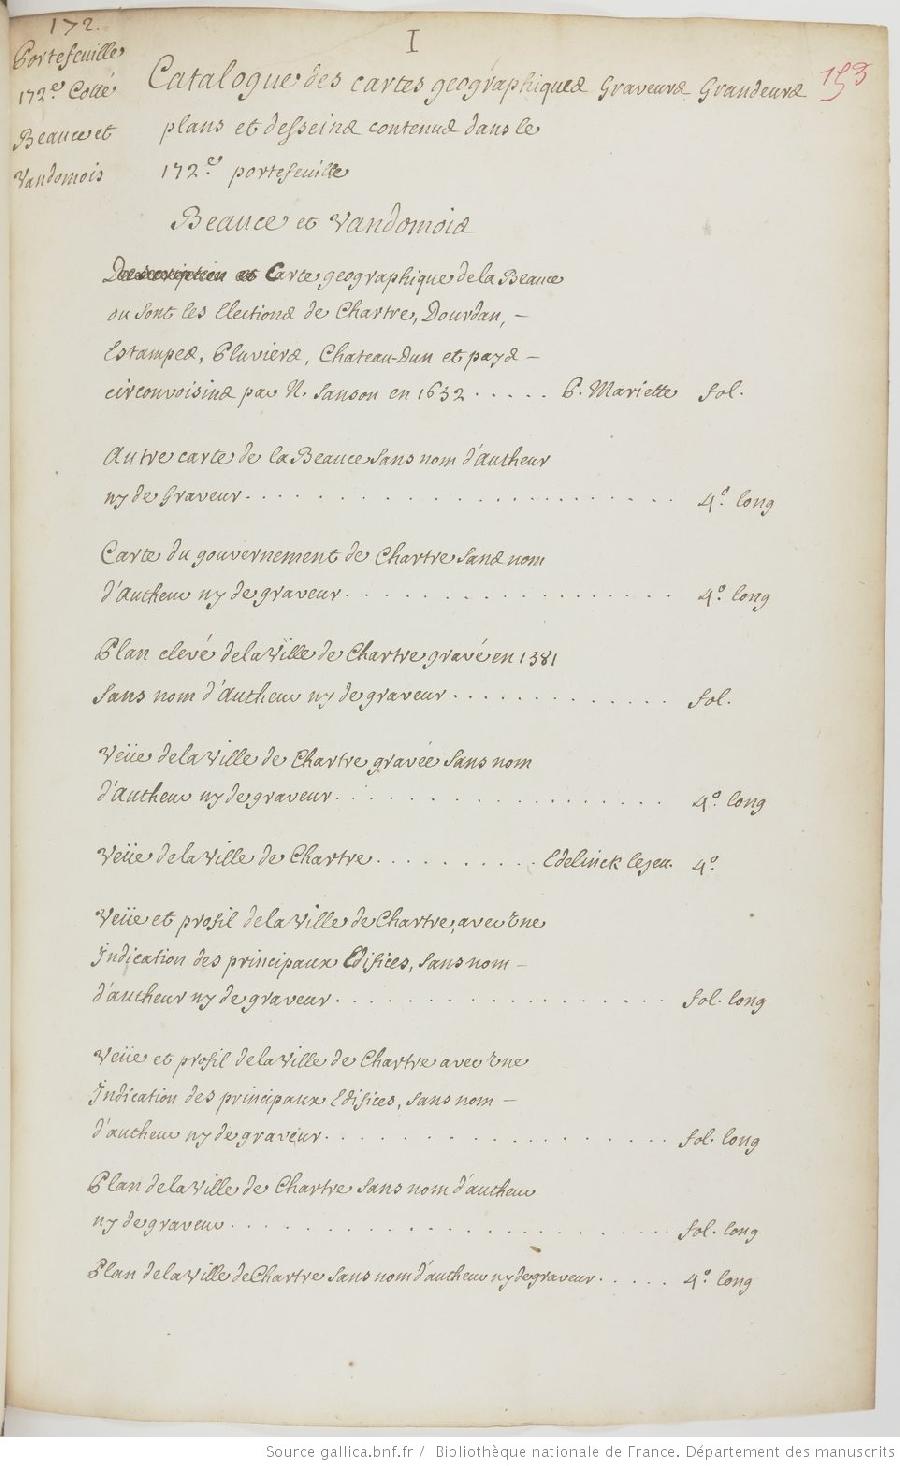 172.
Portefeuille
172e. Cotté
Beauce et
Vandomois
I
153
Catalogue des cartes geographiques Graveurs Grandeurs
plans et desseins contenus dans le
172.e portefeuille
Beauce et Vandomois
Description et Carte geographique de la Beauce
ou sont les Elections de Chartre, Dourdan, -
Estampes, Pluviers, Chateau-Dun et pays -
circonvoisins par N. Sanson en 1652 . . . . . P. Mariette fol.
Autre carte de la Beauce sans nom d'Autheur
ny de Graveur . . . . . . . . . . . . . . . . . . . . . . 4.o long
Carte du gouvernement de Chartre sans nom
d'Autheur ny de graveur . . . . . . . . . . . . . . . . . . 4.o long
Plan elevé de la Ville de Chartre gravé en 1581
sans nom d'Autheur ny de graveur . . . . . . . . . . . fol.
Veüe de la Ville de Chartre gravée sans nom
d'Autheur ny de graveur . . . . . . . . . . . . . . . . . . 4.o long
Veüe de la Ville de Chartre . . . . . . . . . . Edelinck le jeu. 4.o
Veüe et profil de la Ville de Chartre, avec une
Indication des principaux Edifices, sans nom -
d'autheur ny de graveur . . . . . . . . . . . . . . . . . . fol. long
Veüe et profil de la Ville de Chartre avec une
Indication des principaux Edifices, sans nom -
d'autheur ny de graveur . . . . . . . . . . . . . . . . . . fol. long
Plan de la Ville de Chartre sans nom d'autheur
ny de graveur . . . . . . . . . . . . . . . . . . . . . . fol. long
Plan de la Ville de Chartre sans nom d'autheur ny de graveur . . . . . 4.o long
Source gallica.bnf.fr / Bibliothèque nationale de France. Département des manuscrits